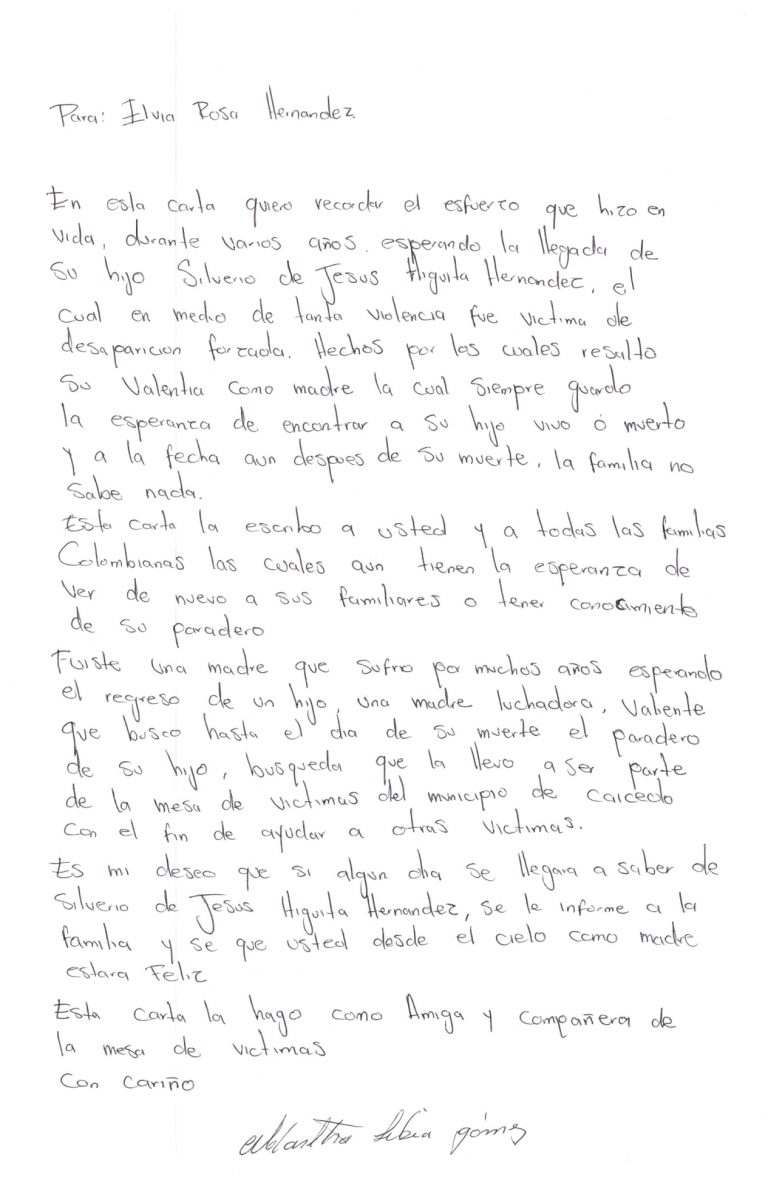 Para: Elvia Rosa Hernandez
En esta carta quiero recordar el esfuerzo que hizo en
vida, durante varios años, esperando la llegada de
su hijo Silverio de Jesus Higuita Hernandez, el
cual en medio de tanta violencia fue victima de
desaparicion forzada. Hechos por los cuales resulto
su Valentia como madre la cual siempre guardo
la esperanza de encontrar a su hijo vivo ó muerto
y a la fecha aun despues de su muerte, la familia no
sabe nada.
Esta carta la escribo a usted y a todas las familias
Colombianas las cuales aun tienen la esperanza de
ver de nuevo a sus familiares o tener conocimiento
de su paradero
Fuiste una madre que sufrio por muchos años esperando
el regreso de un hijo, una madre luchadora, Valiente
que busco hasta el dia de su muerte el paradero
de su hijo, busqueda que la llevo a ser parte
de la mesa de victimas del municipio de Caicedo
con el fin de ayudar a otras victimas.
Es mi deseo que si algun dia se llegara a saber de
Silverio de Jesus Higuita Hernandez, se le informe a la
familia y se que usted desde el cielo como madre
estara Feliz
Esta carta la hago como Amiga y compañera de
la mesa de victimas
Con cariño
Martha Libia gómez